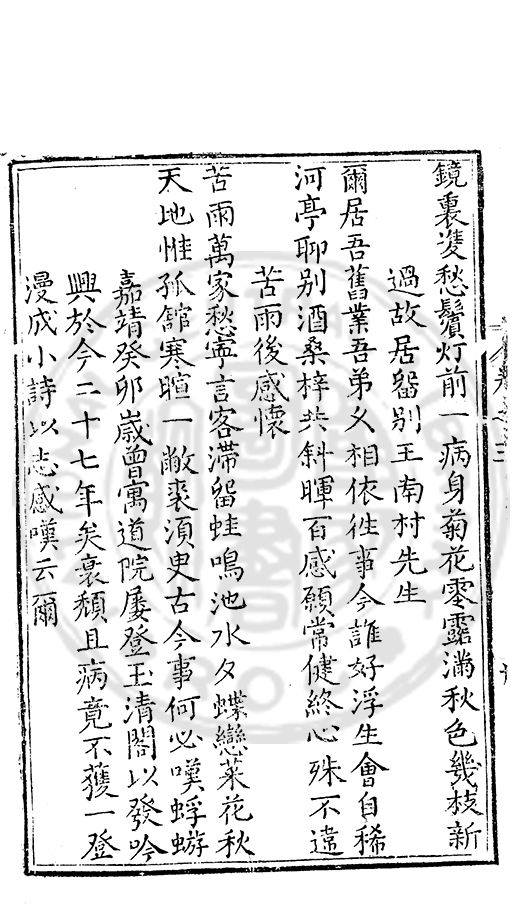 鏡裏雙愁鬢灯前一病身菊花零露滿秋色幾枝新
過故居留别王南村先生
爾居吾舊業吾弟义相依徃事今誰好浮生會自稀
河亭聊别酒桑梓共斜暉百感願常健終心殊不違
苦雨後感懷
苦雨萬家愁寧言客滯留蛙鳴池水夕蝶戀菜花秋
天地惟孤館寒暄一敝裘須臾古今事何必嘆蜉蝣
嘉靖癸卯嵗曾寓道院屢登玉清閣以發吟
興於今二十七年矣衰頽且病竟不獲一登
漫成小詩以志感嘆云爾